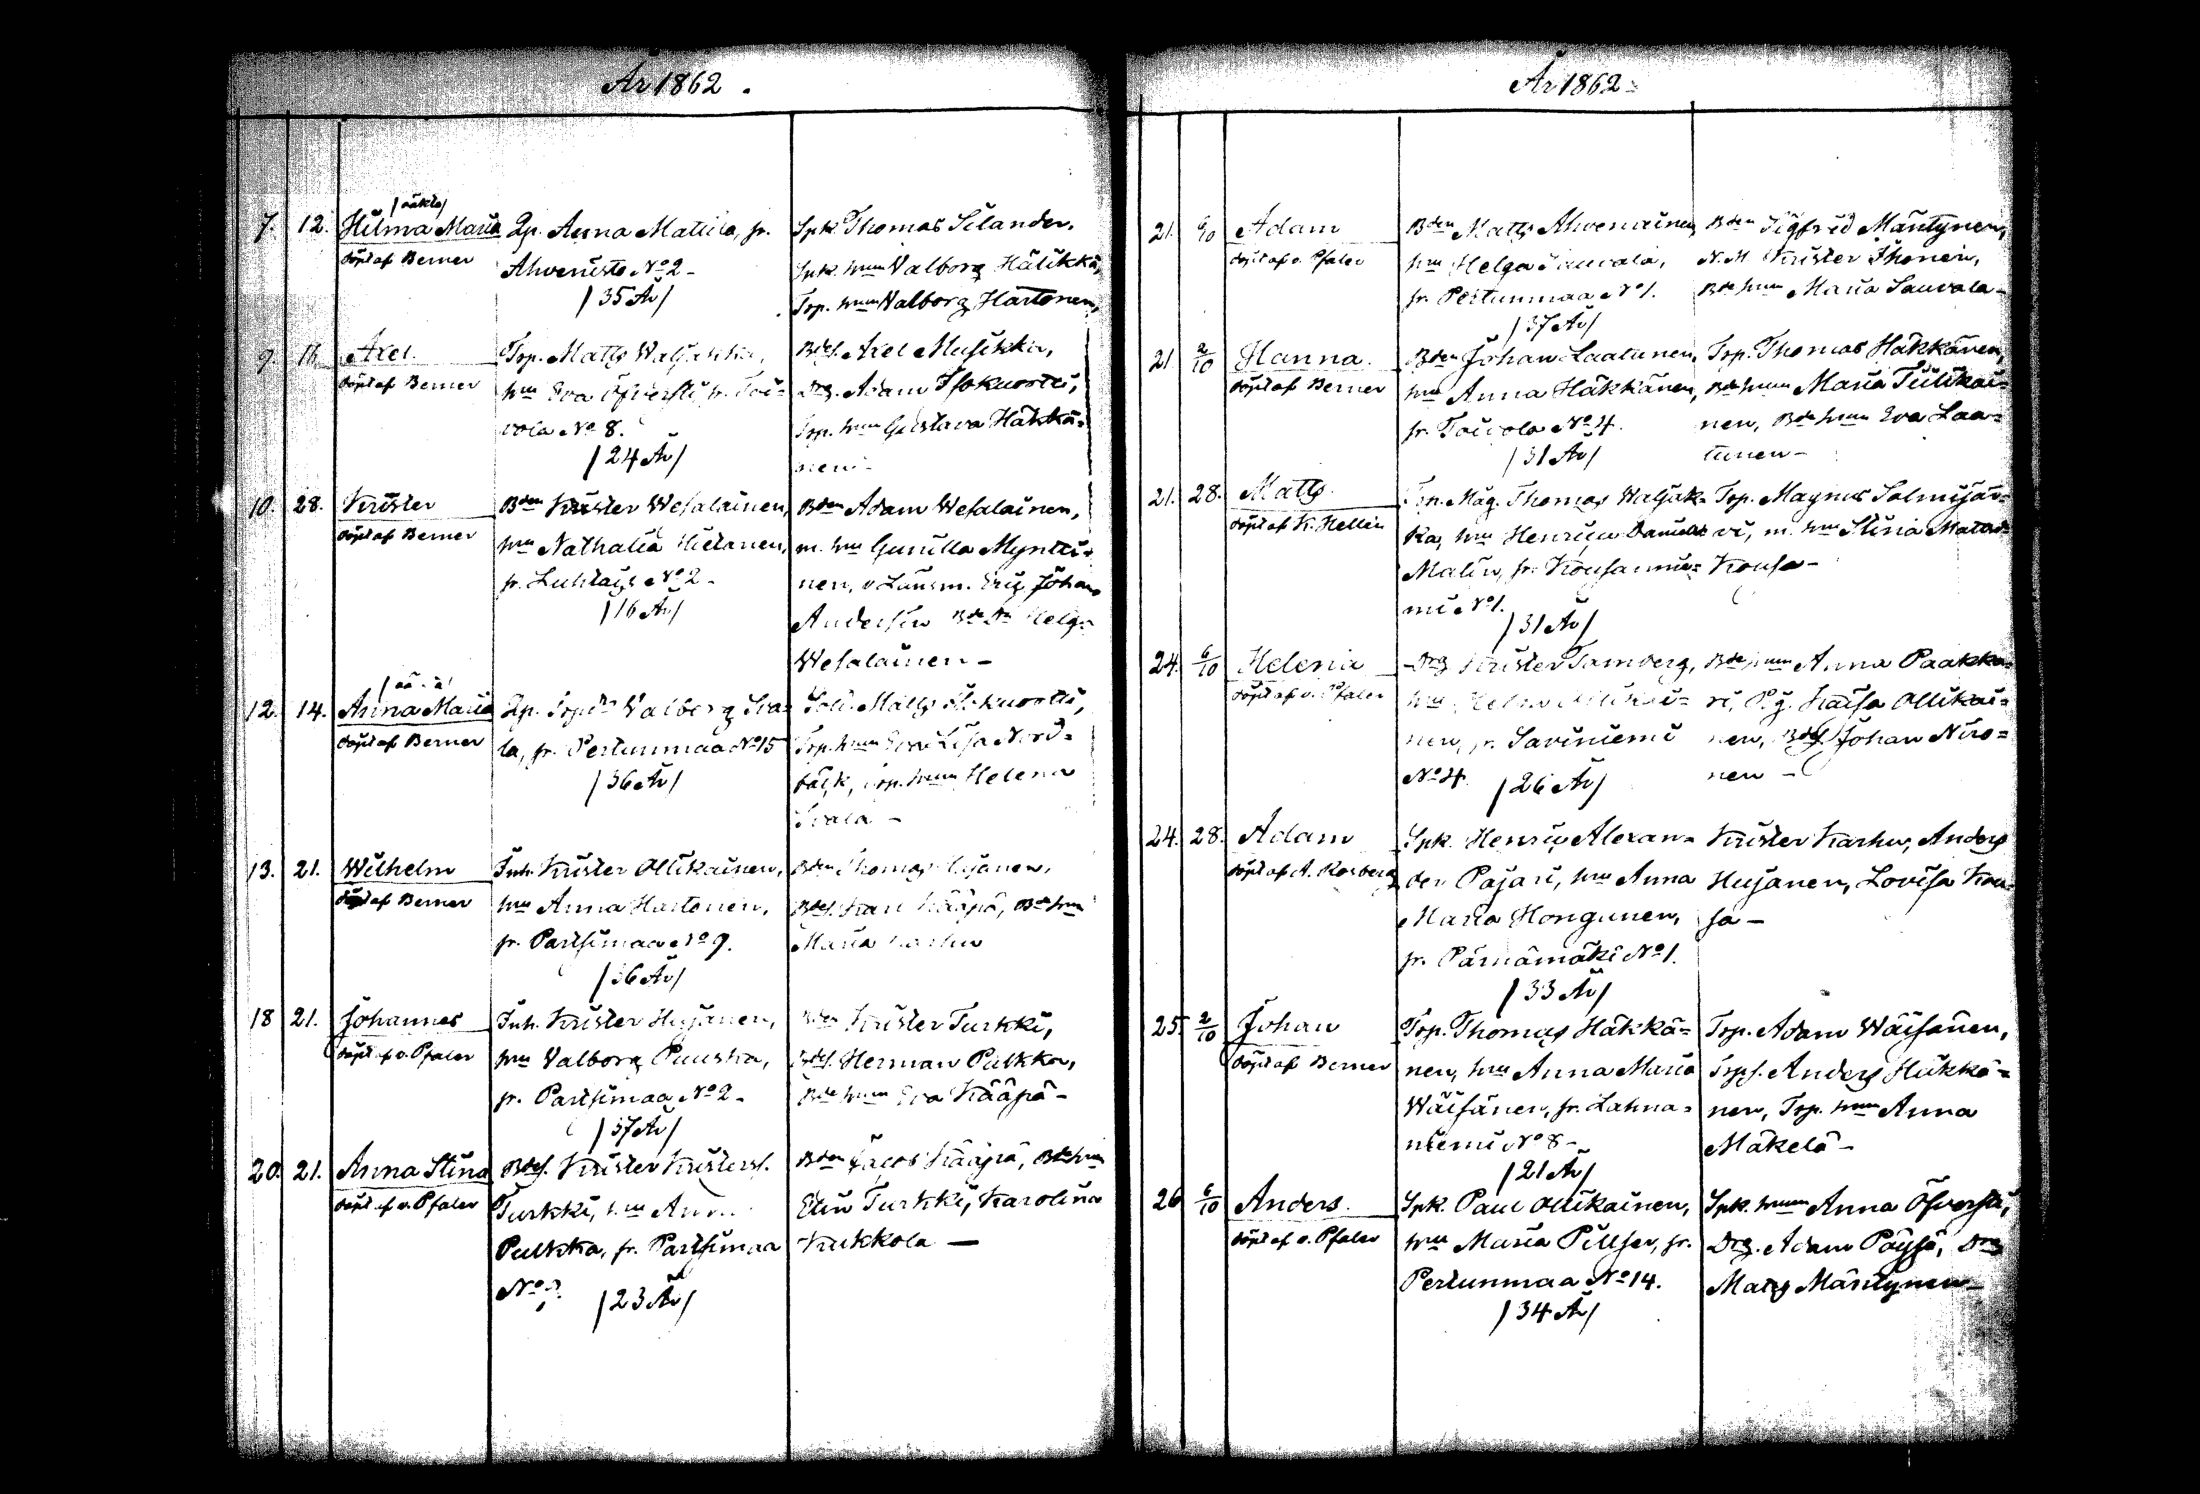 År 1862.
7. 12. Hilma Maria
/oäkta/
döpt af Berner
Qp. Anna Matilda, fr.
Ahvenisto No 2-
/35 År/
Spk. Thomas Silander,
Spk. hum Valborg Hälikkä,
Torp. hum Valborg Hartonen,
9. Axel.
döpt af Berner
Torp. Matts Waljakka,
hru Eva Öfversti, fr. Toi=
vola No 8.
/24 År/
Bdes. Axel Musikka,
Drg. Adam Isokuortti,
Torp. hum Gustava Häkkä=
nen-
10. 28. Krister
döpt af Berner
Bden Krister Wesalainen,
hru Nathalia Hietanen,
fr. Luhtais No 2-
/16 År/
Bden Adam Wesalainen,
m. hru Gunilla Myntti=
nen, v. Länsm. Eric Johan
Andersin Helga
Wesalainen-
12. 14. Anna Maria
döpt af Berner
Qp. Valborg Iva=
la, fr. Pertunmaa No 15
/36 År/
Sold. Matts Isokuortti,
Torp. hum Eva Lisa Nord=
bäck, Torp. hum Helena
Ivala -
13. 21. Wilhelm
döpt af Berner
Inh. Krister Ollikainen,
hru Anna Hartonen,
fr. Partsimaa No 9.
/36 År/
Bden Thomas Hujanen,
Bdes. Karl Kääpä, Bde hru
Maria Karhu
18 21. Johannes
döpt af v. Pfaler
Inh. Krister Hujanen,
hru Valborg Puuska,
fr. Partsimaa No 2-
/37 År/
Bden Krister Turkki,
Bdes. Herman Pulkka,
Bde hum Eva Kääpä-
20. 21. Anna Stina
döpt af v. Pfaler
Bdes. Krister Kristers.
Turkki, hru Anna
Pulkka, fr. Partsimaa
No
/23 År/
Bden Jacob Kääpä, Bde hru
Elin Turkki, Karolina
Kukkola -
År 1862-
21. 6/10 Adam
döpt af v. Pfaler
Bden Matts Ahvenainen,
hru Helga Sauvala,
fr. Pertunmaa No 1.
/37 År/
Bden Sigfrid Mäntynen,
N.M. Krister Ihonen,
Bde hum Maria Sauvala-
21 2/10 Hanna.
döpt af Berner
Bden Johan Laatunen,
hru Anna Häkkänen,
fr. Toivola No 4.
/31 År/
Torp. Thomas Häkkänen,
Bde hum Maria Tiilikai=
nen, Bde hum Eva Laa=
tunen-
21. 28. Matts.
döpt af K. Hellin
Torp. Måg. Thomas Waljak=
ka, hru Henrica Danielsd.
Malin, fr. Kousannie=
mi No 1.
/31 År/
Torp. Magnus Salmijär=
vi, m. hru Stina Matsd.
Kousa-
24. 6/10 Helena
döpt af v. Pfaler
Drg Krister Tamberg,
hru Helena Ollikai=
nen, fr. Saviniemi
No 4. /26 År/
Bde hum Anna Paakka=
ri, P.g. Kaisa Ollikai=
nen, Bdes. Johan Niro=
nen -
24. 28. Adam
döpt af A. Rosberg
Spk. Henric Alexan=
der Pajari, hru Anna
Maria Hongunen,
fr. Pärnämäki No 1.
/33 År/
Krister Karhu, Anders
Hujanen, Lovisa Kou=
sa -
25. 2/10 Johan
döpt af Berner
Torp. Thomas Häkkä=
nen, hru Anna Maria
Wäisänen, fr. Lahna=
niemi No 8-
/21 År/
Torp. Adam Wäisänen,
Torps. Anders Häkkä=
nen, Torp. hum Anna
Mäkelä-
26 6/10 Anders.
döpt af v. Pfaler
Spk. Paul Ollikainen,
hru Maria Pillser, fr.
Pertunmaa No 14.
/34 År/
Spk. hum Anna Öfversti,
Drg. Adam Pöysä, Drg
Matts Mäntynen-